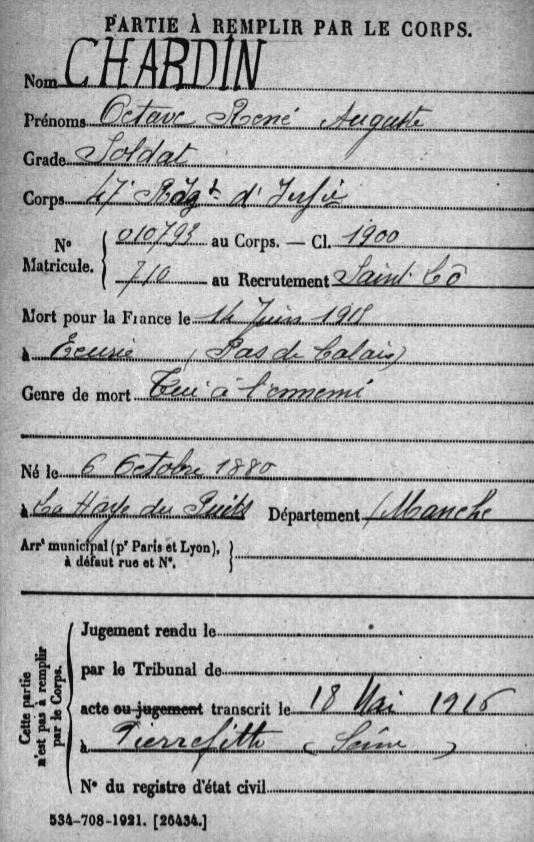 PARTIE À REMPLIR PAR LE CORPS.
Nom CHARDIN
Prénoms Octave René Auguste
Grade Soldat
Corps 47e Régt d'Infie
No Matricule. { 010793 au Corps. — Cl. 1900
710 au Recrutement Saint Lô
Mort pour la France le 14 Juin 1915
à Ecurie (Pas de Calais)
Genre de mort Tué à l'ennemi
Né le 6 Octobre 1880
à La Haye du Puits Département Manche
Arrt municipal (pr Paris et Lyon), à défaut rue et No. }
Cette partie n'est pas à remplir par le Corps.
Jugement rendu le
par le Tribunal de
acte ou jugement transcrit le 18 Mai 1916
à Pierrefitte (Seine)
No du registre d'état civil
534-708-1921. [26434.]